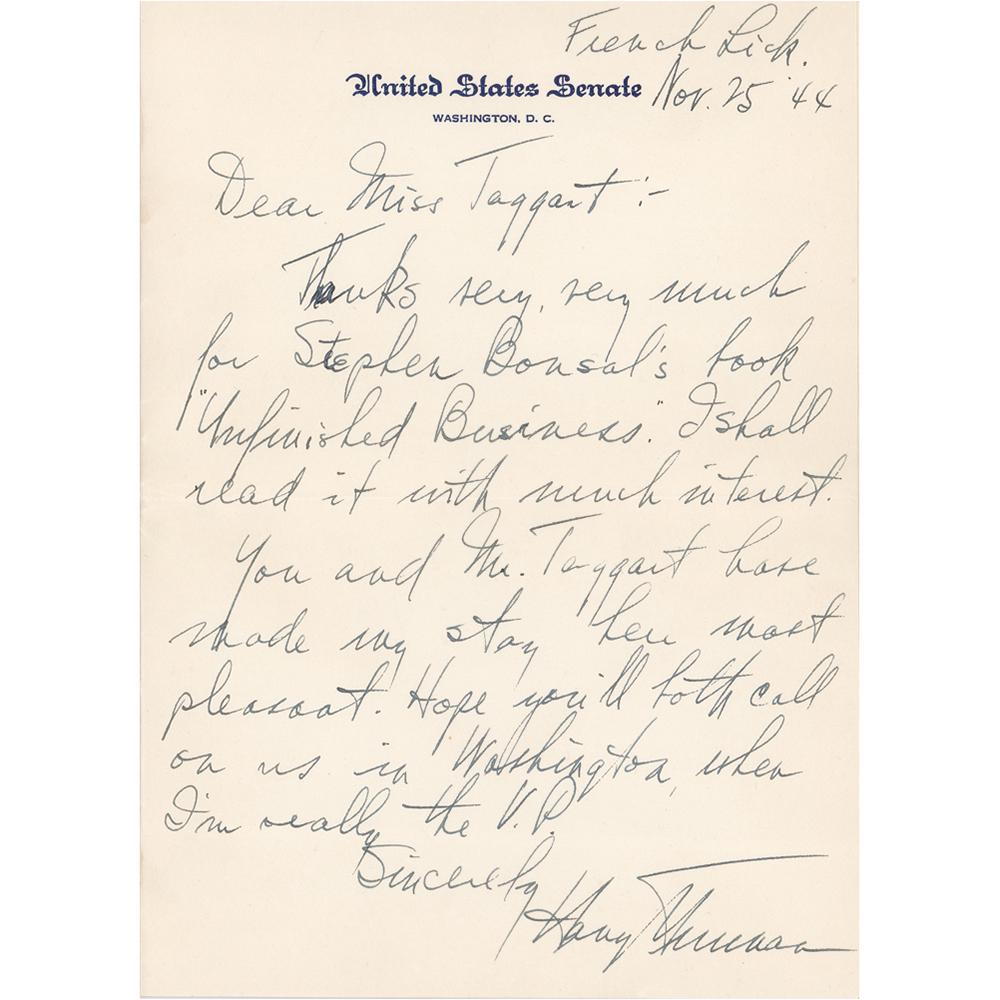 French Lick.
United States Senate Nov. 25 '44
WASHINGTON, D. C.
Dear Miss Taggart :-
Thanks very, very much
for Stephen Bonsal's book
"Unfinished Business." I shall
read it with much interest.
You and Mr. Taggart have
made my stay here most
pleasant. Hope you'll both call
on us in Washington, when
I'm really the V.P.
Sincerely
Harry Truman